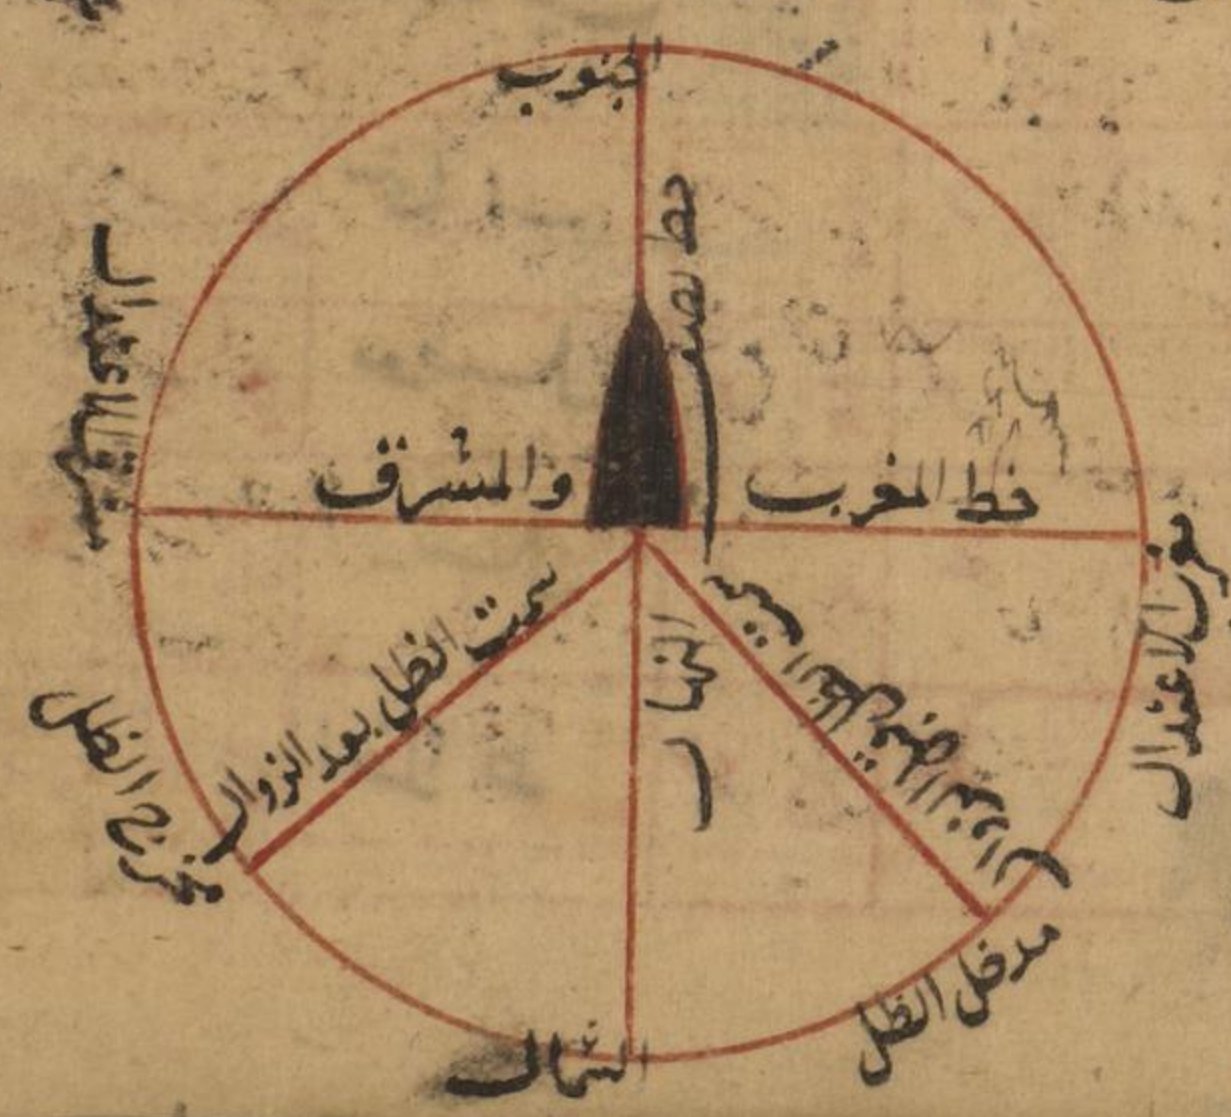 الجنوب
خط نصف
النهار
خط المغرب
والمشرق
مشرق الاعتدال
مغرب الاعتدال
سمت الظل بعد الزوال
سمت الظل قبل الزوال
مخرج الظل
مدخل الظل
الشمال